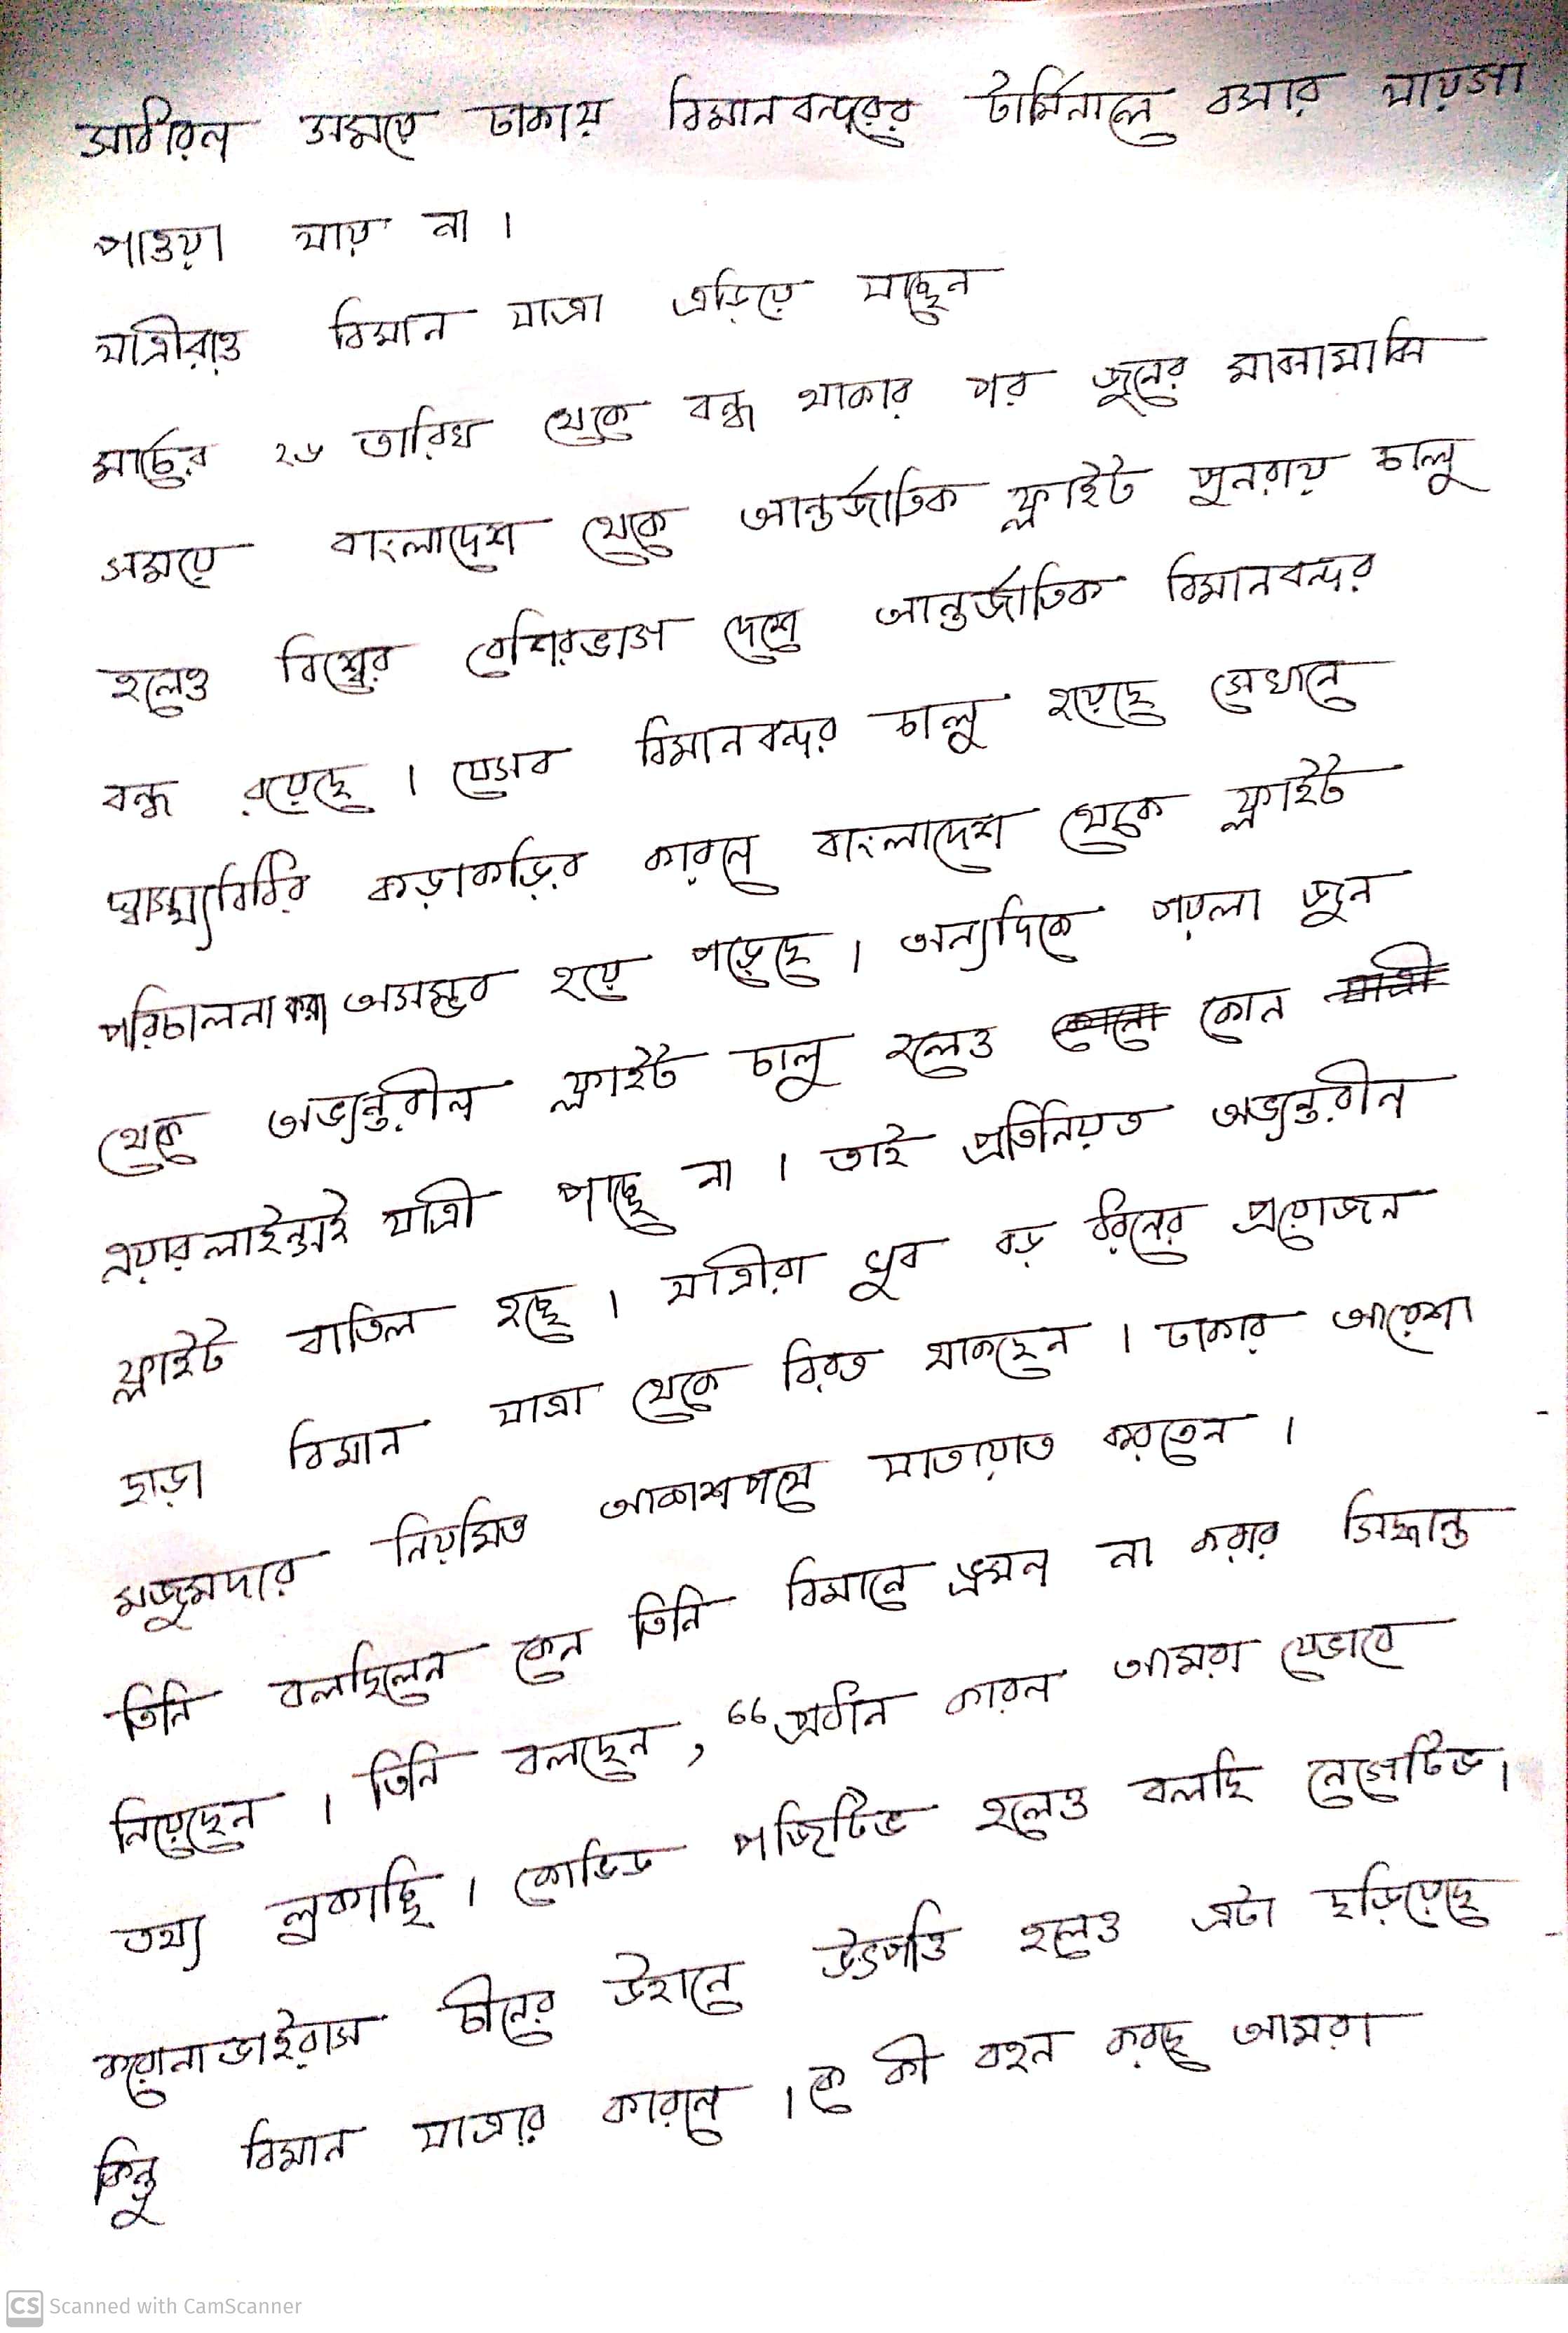 সাধারণ সময়ে ঢাকায় বিমানবন্দরের টার্মিনালে বসার যায়গা
পাওয়া যায় না।
যাত্রীরাও বিমান যাত্রা এড়িয়ে যাচ্ছেন
মার্চের ২৬ তারিখ থেকে বন্ধ থাকার পর জুনের মাঝামাঝি
সময়ে বাংলাদেশ থেকে আন্তর্জাতিক ফ্লাইট পুনরায় চালু
হলেও বিশ্বের বেশিরভাগ দেশে আন্তর্জাতিক বিমানবন্দর
বন্ধ রয়েছে। যেসব বিমানবন্দর চালু হয়েছে সেখানে
স্বাস্থ্যবিধির কড়াকড়ির কারণে বাংলাদেশ থেকে ফ্লাইট
পরিচালনা করা অসম্ভব হয়ে পড়েছে। অন্যদিকে পয়লা জুন
থেকে অভ্যন্তরীণ ফ্লাইট চালু হলেও কোন
এয়ারলাইন্সই যাত্রী পাচ্ছে না। তাই প্রতিনিয়ত অভ্যন্তরীণ
ফ্লাইট বাতিল হচ্ছে। যাত্রীরা খুব বড় ধরনের প্রয়োজন
ছাড়া বিমান যাত্রা থেকে বিরত থাকছেন। ঢাকার আয়েশা
মজুমদার নিয়মিত আকাশপথে যাতায়াত করতেন।
তিনি বলছিলেন কেন তিনি বিমানে ভ্রমণ না করার সিদ্ধান্ত
নিয়েছেন। তিনি বলছেন, “প্রধান কারণ আমরা যেভাবে
তথ্য লুকাচ্ছি। কোভিড পজিটিভ হলেও বলছি নেগেটিভ।
করোনাভাইরাস চীনের উহানে উৎপত্তি হলেও এটা ছড়িয়েছে
কিন্তু বিমান যাত্রার কারণে। কে কী বহন করছে আমরা
CS Scanned with CamScanner